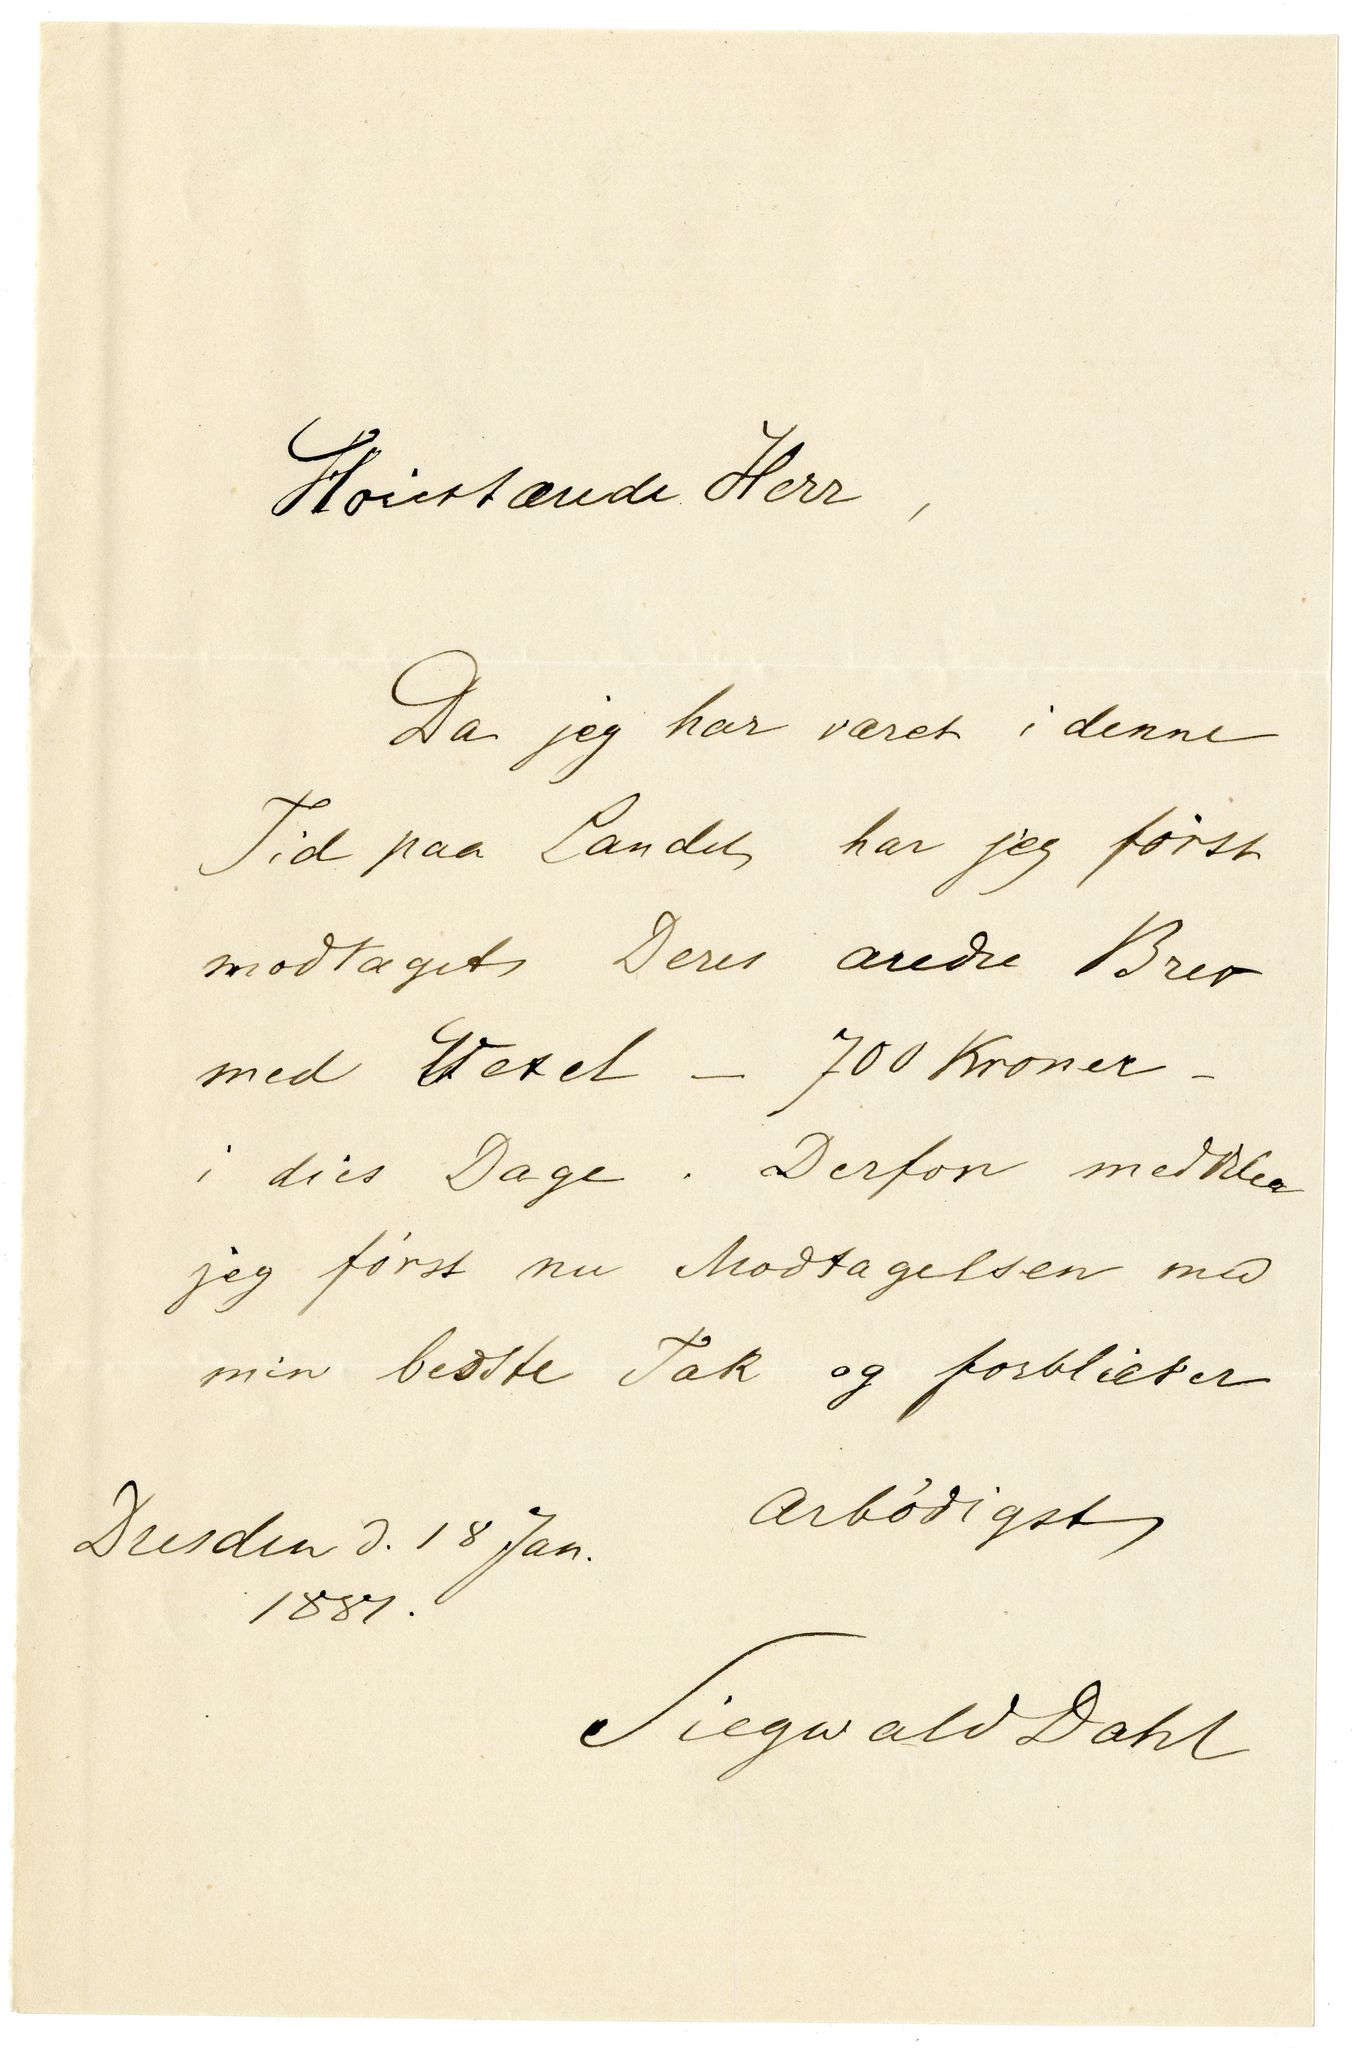 Høiestærede Herr,
Da jeg har været i denne
Tid paa Landet, har jeg først
modtaget Deres ærede Brev
med Vexel — 700 Kroner —
i dies Dage. Derfor meddeler
jeg først nu Modtagelsen med
min bedste Tak og forbliever
ærbødigst
Dresden d. 18 Jan.
1887.
Siegwald Dahl